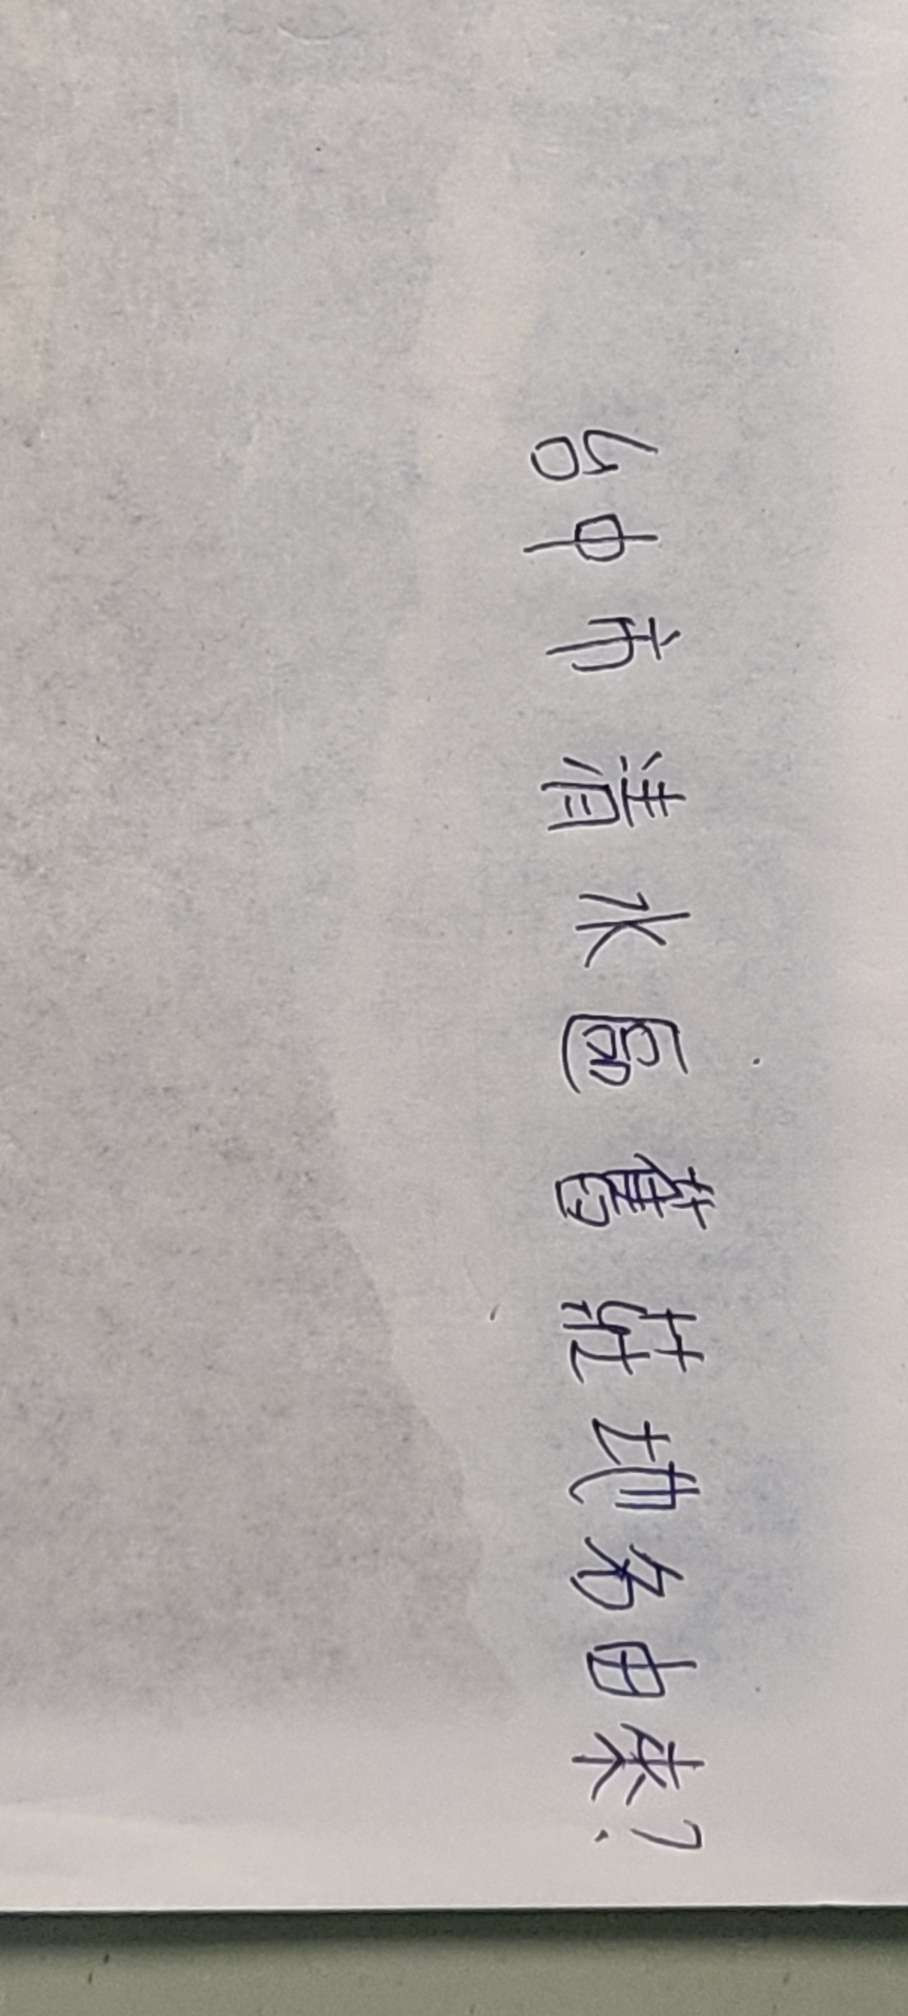 台中市清水區舊莊地名由來?